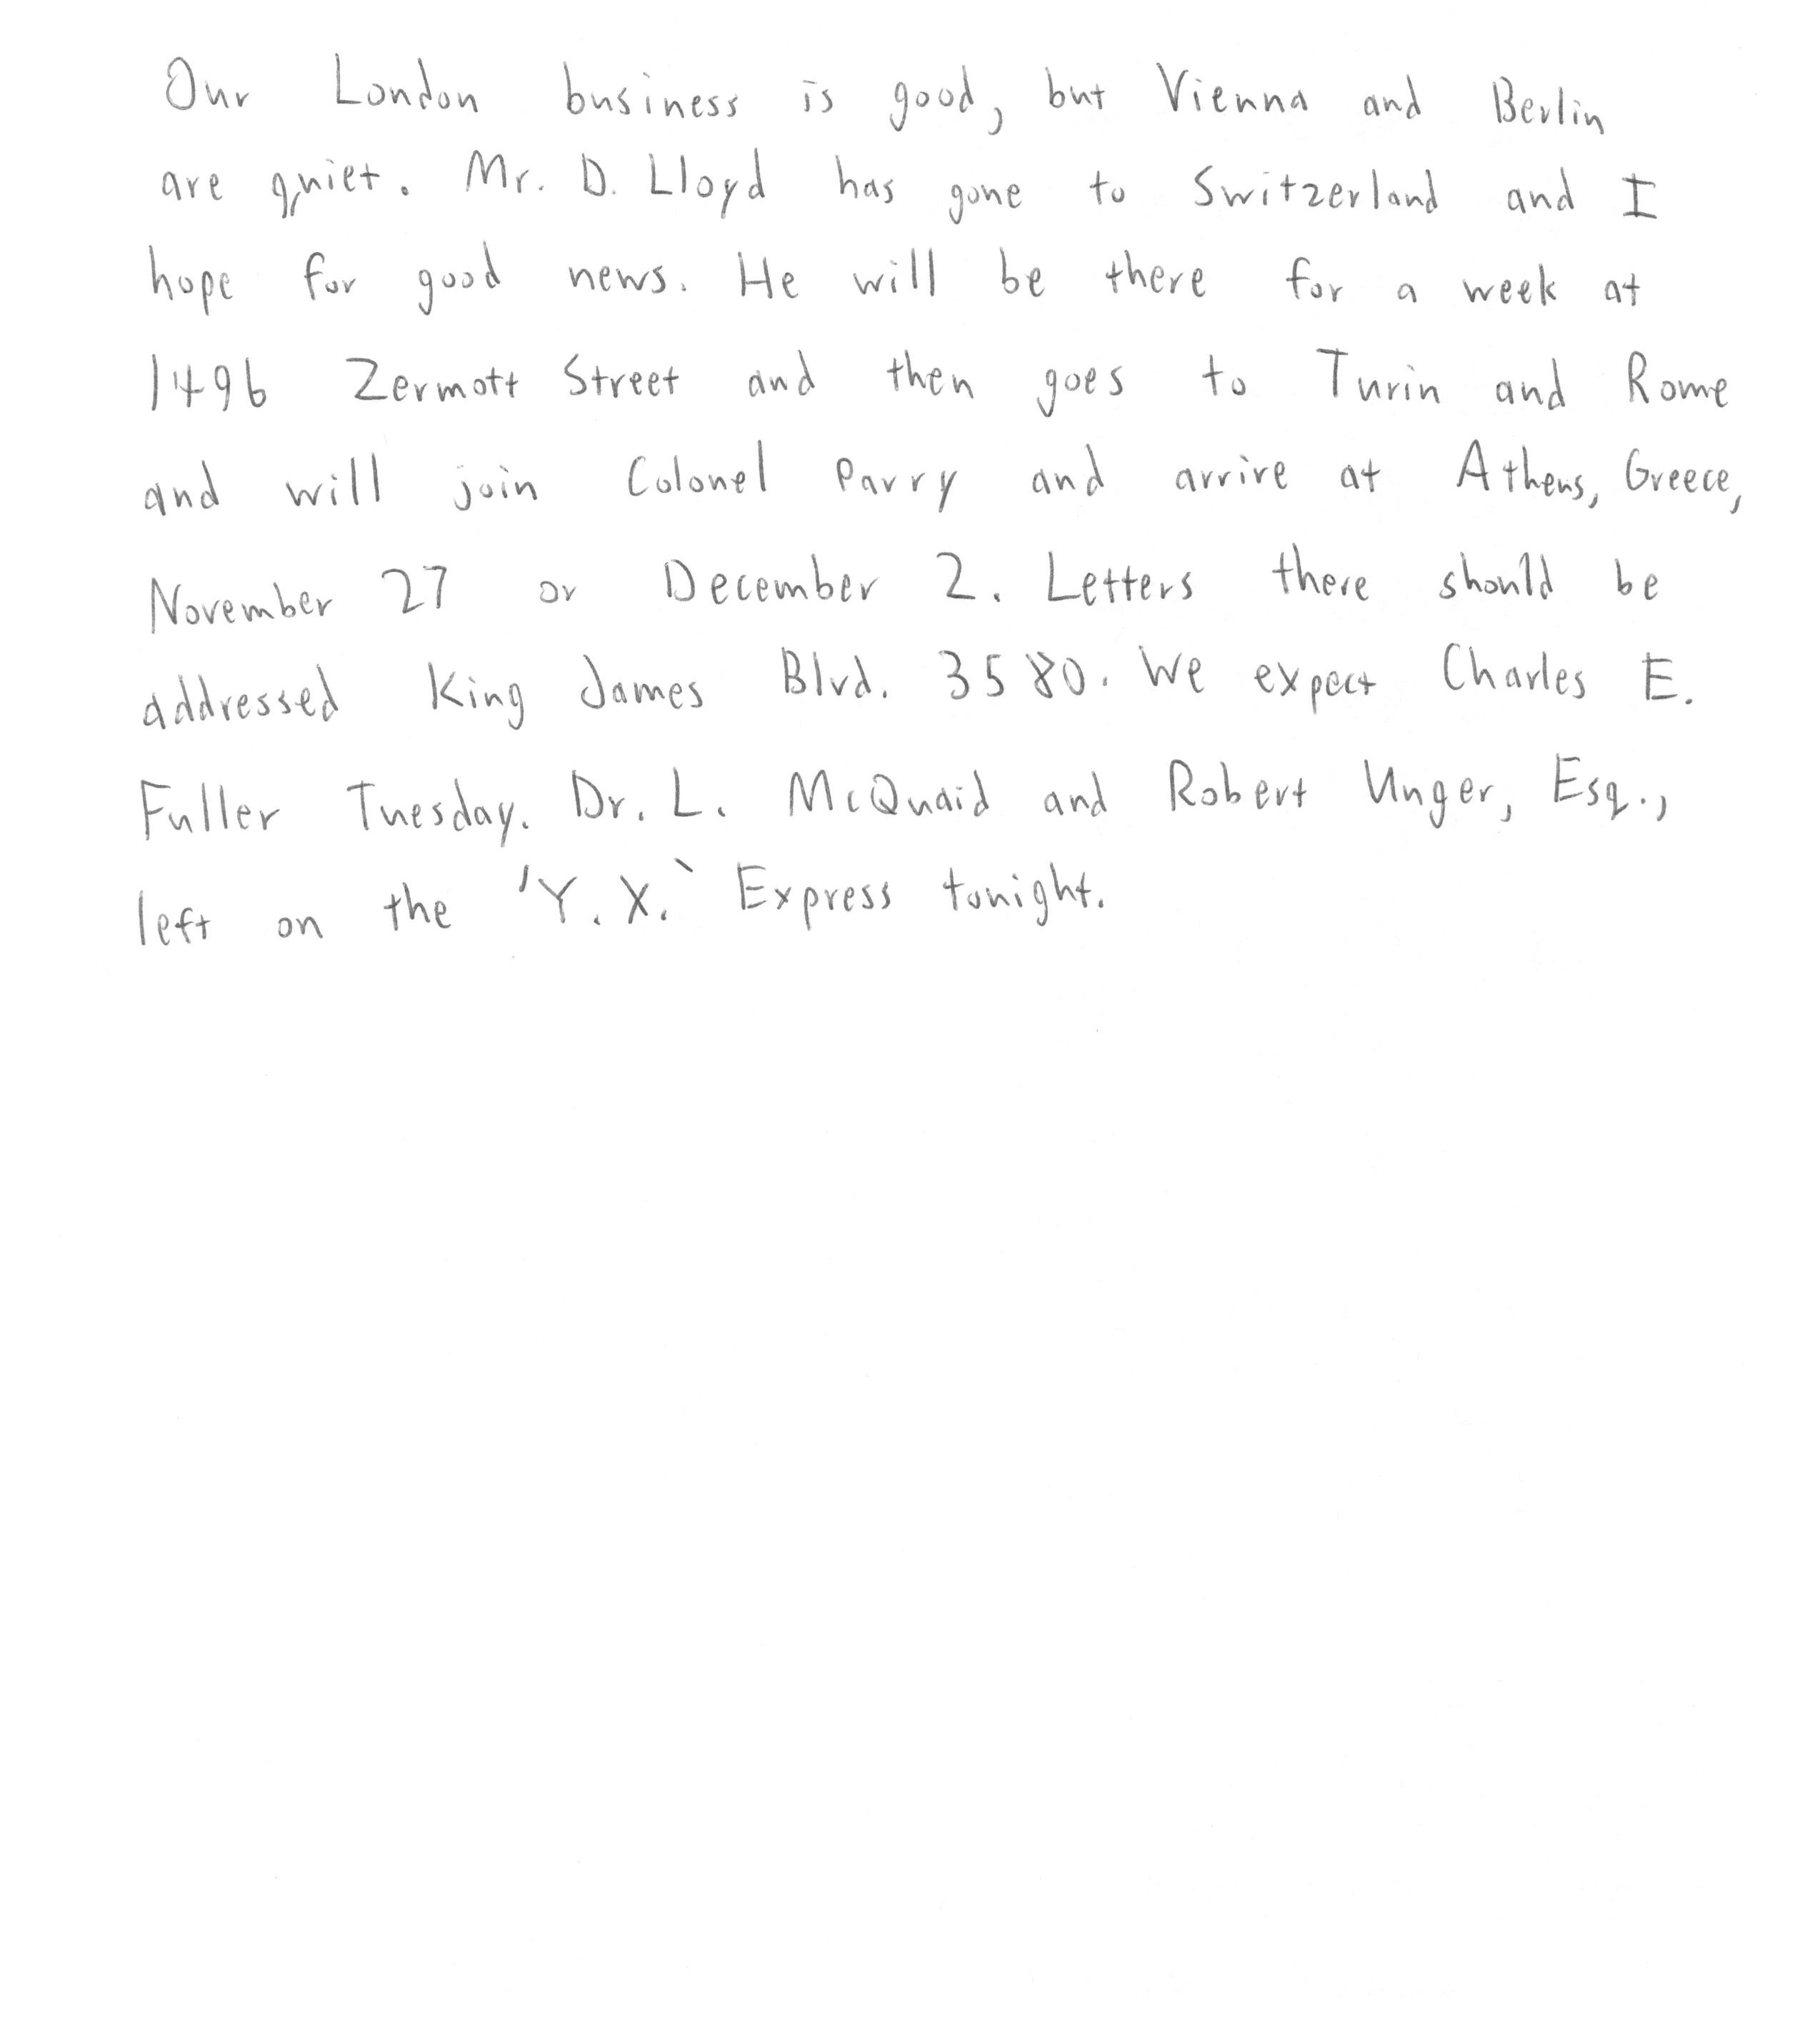 Our London business is good, but Vienna and Berlin
are quiet. Mr. D. Lloyd has gone to Switzerland and I
hope for good news. He will be there for a week at
1496 Zermott Street and then goes to Turin and Rome
and will join Colonel Parry and arrive at Athens, Greece,
November 27 or December 2. Letters there should be
addressed King James Blvd. 3580. We expect Charles E.
Fuller Tuesday. Dr. L. McQuaid and Robert Unger, Esq.,
left on the 'Y. X.` Express tonight.